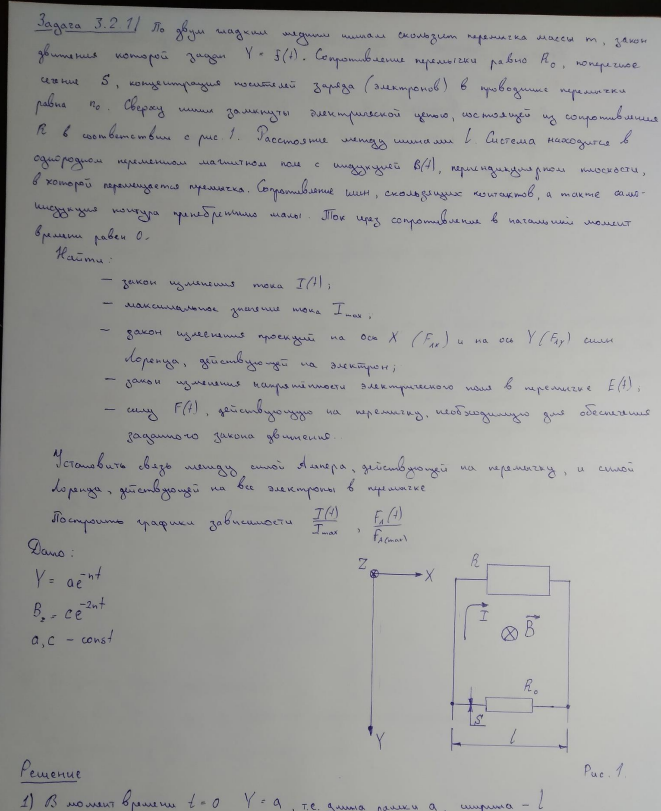 Задача 3.2.1 По двум гладким медным шинам скользит перемычка массы m, закон
движения которой задан Y = f(t). Сопротивление перемычки равно R₀, поперечное
сечение S, концентрация носителей заряда (электронов) в проводнике перемычки
равна n₀. Сверху шины замкнуты электрической цепью, состоящей из сопротивления
R в соответствии с рис. 1. Расстояние между шинами l. Система находится в
однородном переменном магнитном поле с индукцией B(t), перпендикулярном плоскости,
в которой перемещается перемычка. Сопротивление шин, скользящих контактов, а также само-
индукция контура пренебрежимо малы. Ток через сопротивление в начальный момент
времени равен 0.
Найти:
– закон изменения тока I(t);
– максимальное значение тока I max,
– закон изменения проекций на ось X (Fлx) и на ось Y (Fлy) силы
Лоренца, действующей на электрон;
– закон изменения напряжённости электрического поля в перемычке E(t),
– силу F(t), действующую на перемычку, необходимую для обеспечения
заданного закона движения.
Установить связь между силой Ампера, действующей на перемычку, и силой
Лоренца, действующей на все электроны в перемычке
Построить графики зависимости I(t)/I max, Fл(t)/Fл(max)
Дано:
Y = ae^-nt
Bz = ce^-2nt
a, c – const
Z X Y
R
I
B
R₀
S
l
Рис. 1.
Решение
1) В момент времени t = 0 Y = a, т.е. длина рамки a, ширина – l